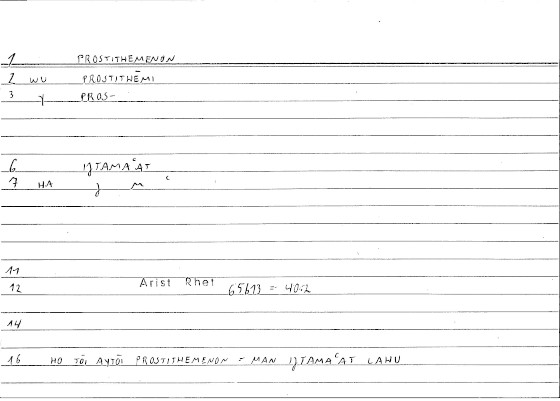 1 PROSTITHEMENON
2 WU PROSTITHĒMI
3 Y PROS-
6 IJTAMAᶜAT
7 HA J M ᶜ
11
12 Arist Rhet 65b13 = 40.2
14
16 HO TŌI AYTŌI PROSTITHEMENON = MAN IJTAMAᶜAT LAHU